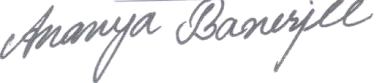 Ananya Banerjee